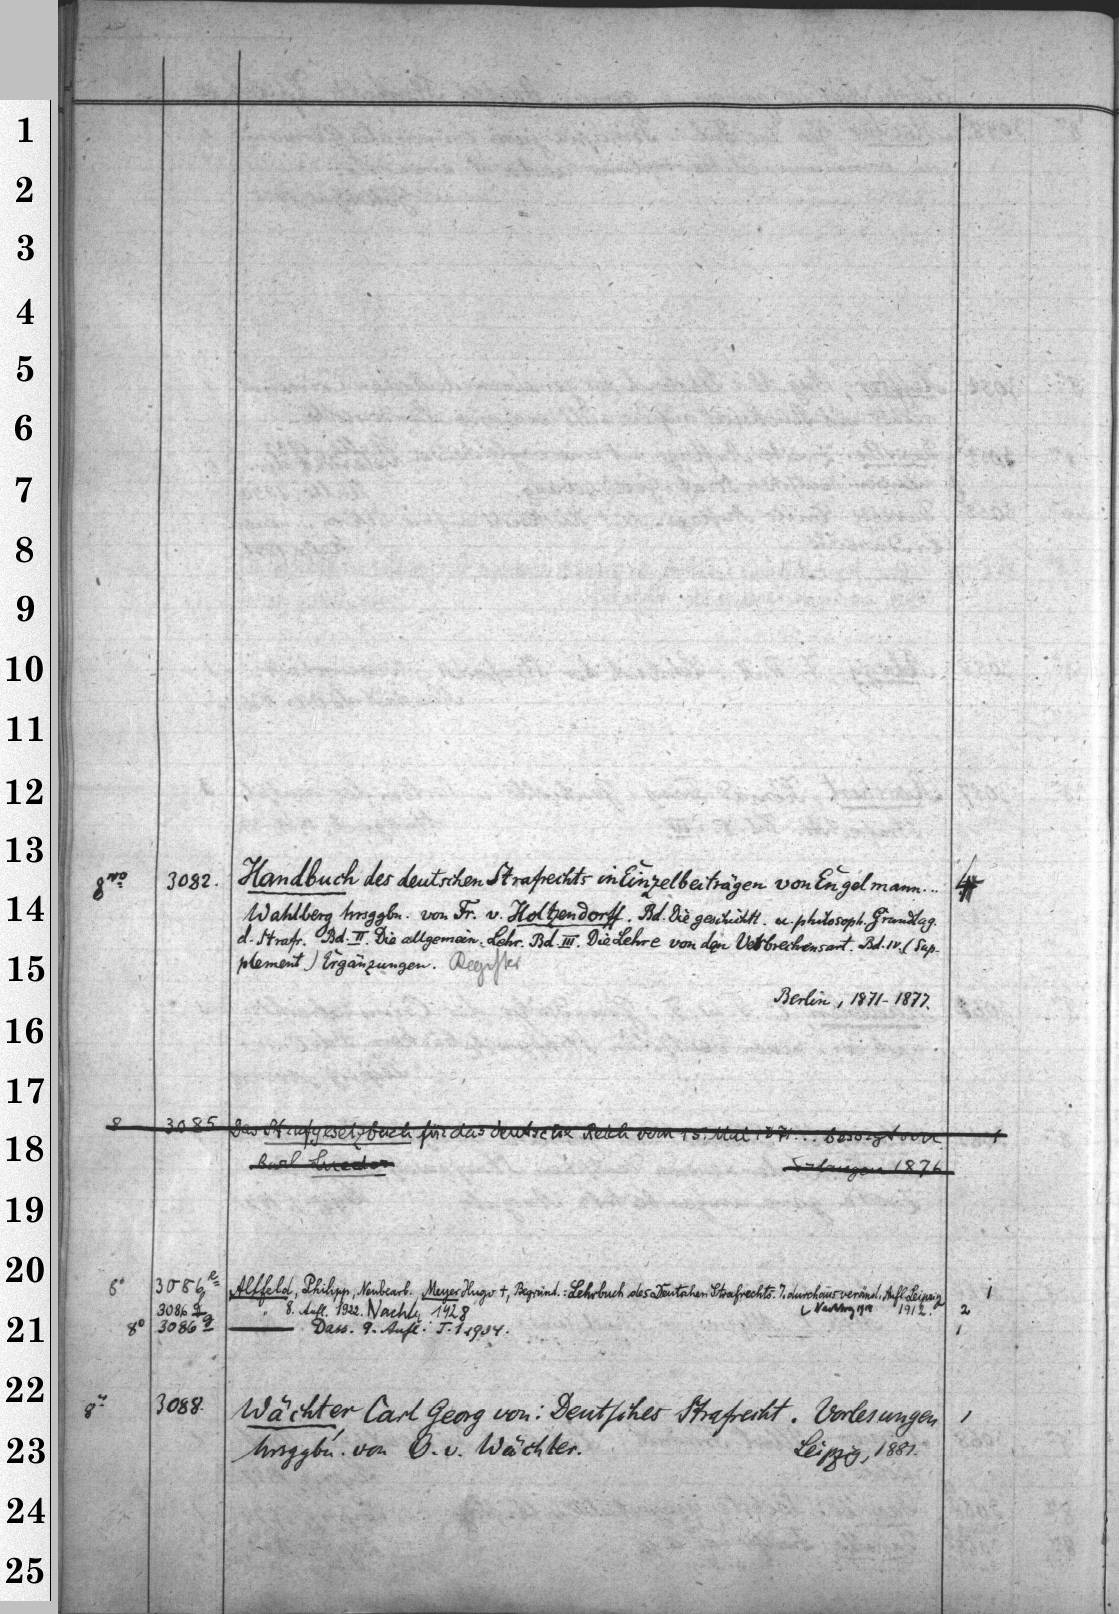 1
2
3
4
5
6
7
8
9
10
11
12
13
8vo 3082. Handbuch des deutschen Strafrechts in Einzelbeiträgen von Engelmann... 4
14
Wahlberg hrsggbn. von Fr. v. Holtzendorff. Bd. Die geschichtl. u. philosoph. Grundlag.
d. Strafr. Bd. II. Die allgemein. Lehr. Bd. III. Die Lehre von den Verbrechensart. Bd. IV. (Sup-
15
plement) Ergänzungen. Register
Berlin, 1871-1877.
16
17
8 3085 Das Strafgesetzbuch für das deutsche Reich vom 15. Mai 1871... besorgt von 1
18
Karl Lueder Erlangen 1876
19
20
8° 3086e Alffeld, Philipp, Neubearb. Meyer Hugo †, Begründ.: Lehrbuch des Deutschen Strafrechts. 7. durchaus veränd. Aufl. Leipzig 1
3086 " 8. Aufl. 1922. Nachtr. 1928 1912. 2
21
8° 3086g Dass. 9. Aufl. T. 1 1934. 1
22
8° 3088. Wächter Carl Georg von: Deutsches Strafrecht. Vorlesungen 1
23
hrsggbn. von O. v. Wächter. Leipzig, 1881.
24
25